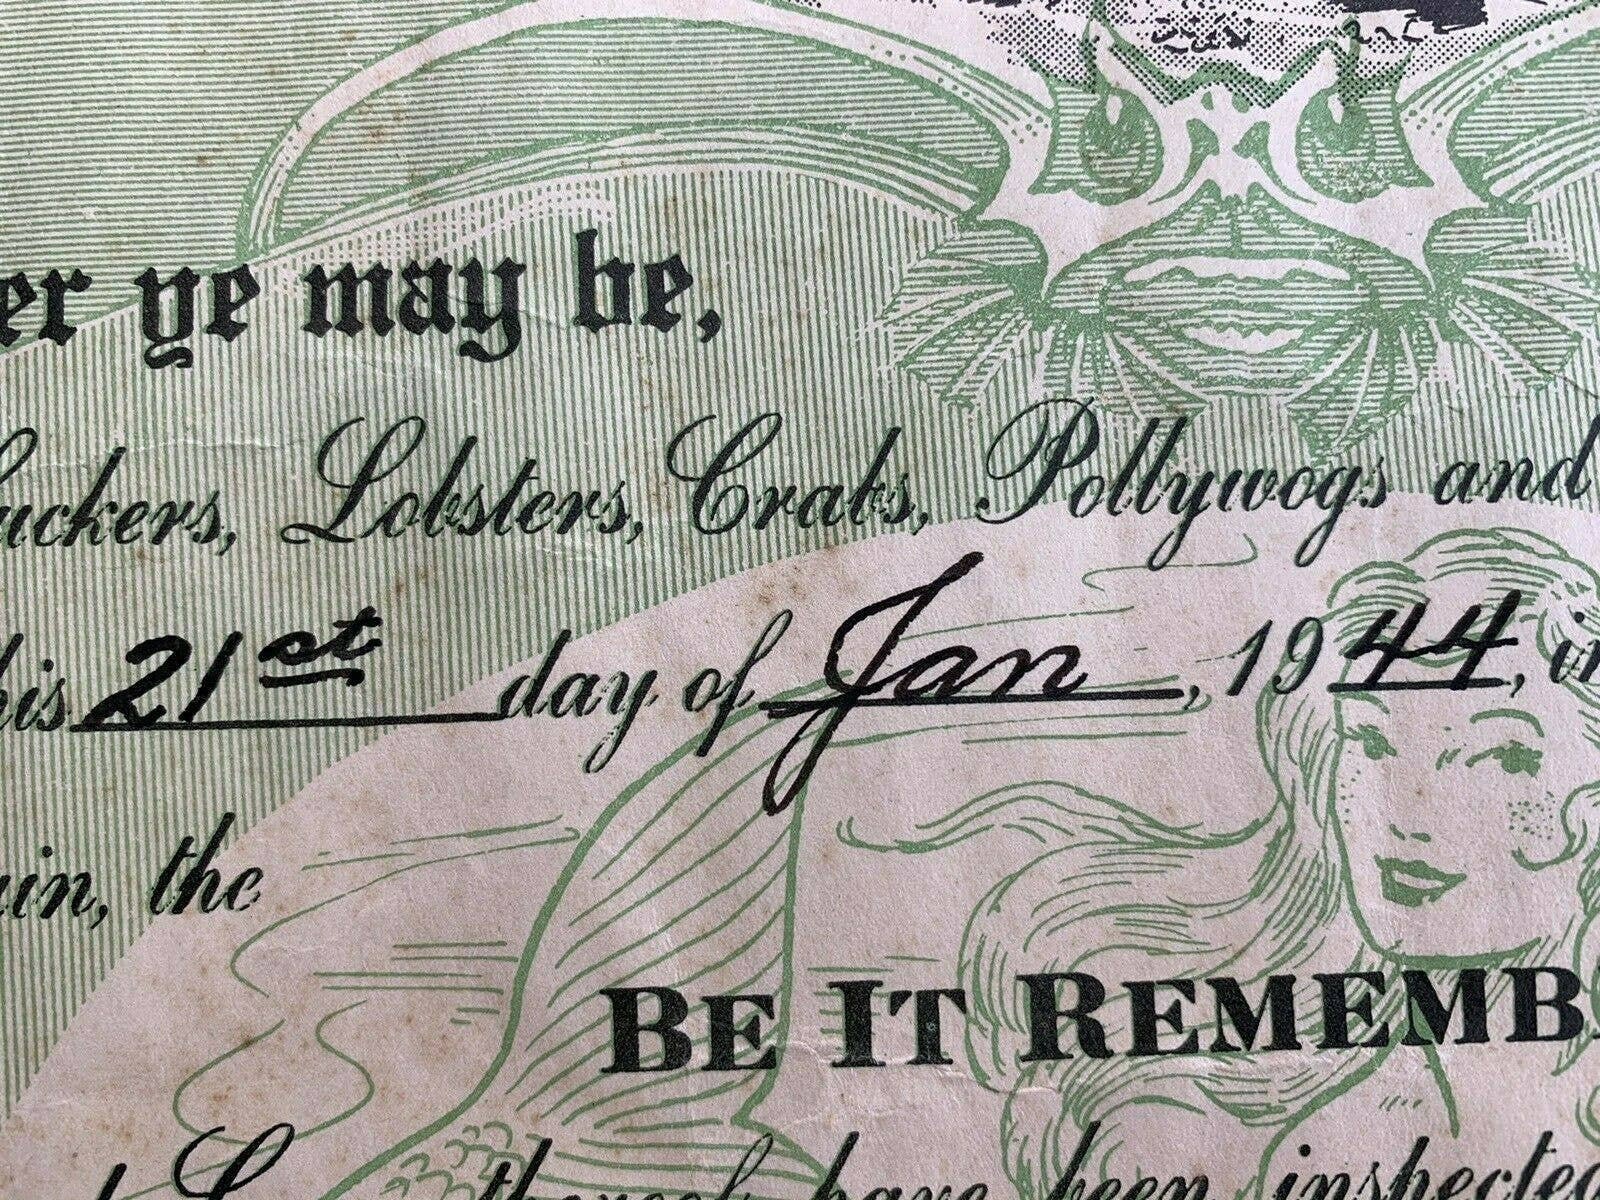 er ye may be,
uckers, Lobsters, Crabs, Pollywogs and
his 21st day of Jan, 1944, in
in, the
BE IT REMEMB
thereof have been inspected